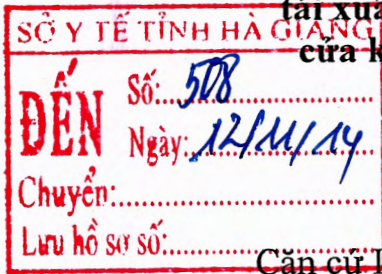 tái xuấ
SỞ Y TẾ TỈNH HÀ GIANG
cửa k
ĐẾN
Số: 508
Ngày: 12/11/14
Chuyển:
Lưu hồ sơ số:
Căn cứ L